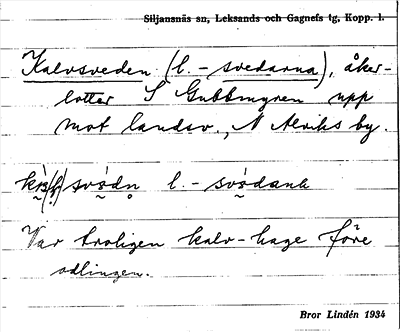 Siljansnäs sn, Leksands och Gagnefs tg, Kopp. l.
Kalvsveden (l. -svedarna), åker-
lotter S Gubbmyren upp
mot landsv., N Alviks by.
svǫ́dn̥ l. -svǫ́danh
Var troligen kalv-hage före
odlingen.
Bror Lindén 1934